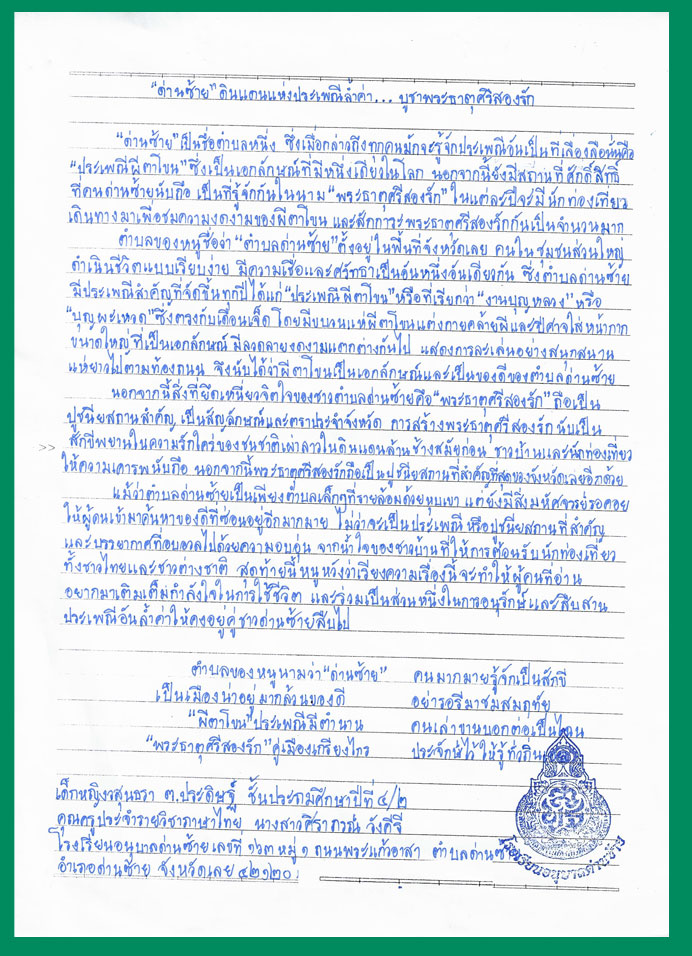 "ด่านซ้าย" ดินแดนแห่งประเพณีล้ำค่า... บูชาพระธาตุศรีสองรัก
"ด่านซ้าย" เป็นชื่อตำบลหนึ่ง ซึ่งเมื่อกล่าวถึงทุกคนมักจะรู้จักประเพณีอันเป็นที่เลื่องลือนั่นคือ
"ประเพณีผีตาโขน" ซึ่งเป็นเอกลักษณ์ที่มีหนึ่งเดียวในโลก นอกจากนี้ยังมีสถานที่ศักดิ์สิทธิ์
ที่คนด่านซ้ายนับถือ เป็นที่รู้จักกันในนาม "พระธาตุศรีสองรัก" ในแต่ละปีจะมีนักท่องเที่ยว
เดินทางมาเพื่อชมความงดงามของผีตาโขน และสักการะพระธาตุศรีสองรักกันเป็นจำนวนมาก
ตำบลของหนูชื่อว่า "ตำบลด่านซ้าย" ตั้งอยู่ในพื้นที่จังหวัดเลย คนในชุมชนส่วนใหญ่
ดำเนินชีวิตแบบเรียบง่าย มีความเชื่อและศรัทธาเป็นอันหนึ่งอันเดียวกัน ซึ่งตำบลด่านซ้าย
มีประเพณีสำคัญที่จัดขึ้นทุกปีได้แก่ "ประเพณีผีตาโขน" หรือที่เรียกว่า "งานบุญหลวง" หรือ
"บุญผะเหวด" ซึ่งตรงกับเดือนเจ็ด โดยมีขบวนแห่ผีตาโขนแต่งกายคล้ายผีและปีศาจใส่หน้ากาก
ขนาดใหญ่ที่เป็นเอกลักษณ์ มีลวดลายงดงามแตกต่างกันไป แสดงการละเล่นอย่างสนุกสนาน
แห่ยาวไปตามท้องถนน จึงนับได้ว่าผีตาโขนเป็นเอกลักษณ์และเป็นของดีของตำบลด่านซ้าย
นอกจากนี้สิ่งที่ยึดเหนี่ยวจิตใจของชาวตำบลด่านซ้ายคือ "พระธาตุศรีสองรัก" ถือเป็น
ปูชนียสถานสำคัญ เป็นสัญลักษณ์และตราประจำจังหวัด การสร้างพระธาตุศรีสองรัก นับเป็น
สักขีพยานในความรักใคร่ของชนชาติเผ่าลาวในดินแดนล้านช้างสมัยก่อน ชาวบ้านและนักท่องเที่ยว
>>
ให้ความเคารพนับถือ นอกจากนี้พระธาตุศรีสองรักถือเป็นปูชนียสถานที่สำคัญที่สุดของจังหวัดเลยอีกด้วย
แม้ว่าตำบลด่านซ้ายเป็นเพียงตำบลเล็กๆที่รายล้อมด้วยหุบเขา แต่ยังมีสิ่งมหัศจรรย์รอคอย
ให้ผู้คนเข้ามาค้นหาของดีที่ซ่อนอยู่อีกมากมาย ไม่ว่าจะเป็นประเพณี หรือปูชนียสถานที่สำคัญ
และบรรยากาศที่อบอวลไปด้วยความอบอุ่น จากน้ำใจของชาวบ้านที่ให้การต้อนรับนักท่องเที่ยว
ทั้งชาวไทยและชาวต่างชาติ สุดท้ายนี้หนูหวังว่าเรียงความเรื่องนี้จะทำให้ผู้คนที่อ่าน
อยากมาเติมเต็มกำลังใจในการใช้ชีวิต และร่วมเป็นส่วนหนึ่งในการอนุรักษ์และสืบสาน
ประเพณีอันล้ำค่าให้คงอยู่คู่ชาวด่านซ้ายสืบไป
ตำบลของหนูนามว่า "ด่านซ้าย" คนมากมายรู้จักเป็นสักขี
เป็นเมืองน่าอยู่มากล้วนของดี อย่ารอรีมาชมสมฤทัย
"ผีตาโขน" ประเพณีมีตำนาน คนเล่าขานบอกต่อเป็นไหน
"พระธาตุศรีสองรัก" คู่เมืองเกรียงไกร ประจักษ์ไว้ให้รู้ทั่วถิ่น
เด็กหญิงวสุนธรา ต.ประดิษฐ์ ชั้นประถมศึกษาปีที่ ๔/๒
คุณครูประจำรายวิชาภาษาไทย นางสาวศิราภรณ์ วังคีรี
โรงเรียนอนุบาลด่านซ้าย เลขที่ ๑๖๓ หมู่ ๑ ถนนพระแก้วอาสา ตำบลด่านซ้
อำเภอด่านซ้าย จังหวัดเลย ๔๒๑๒๐
โรงเรียนอนุบาลด่านซ้าย